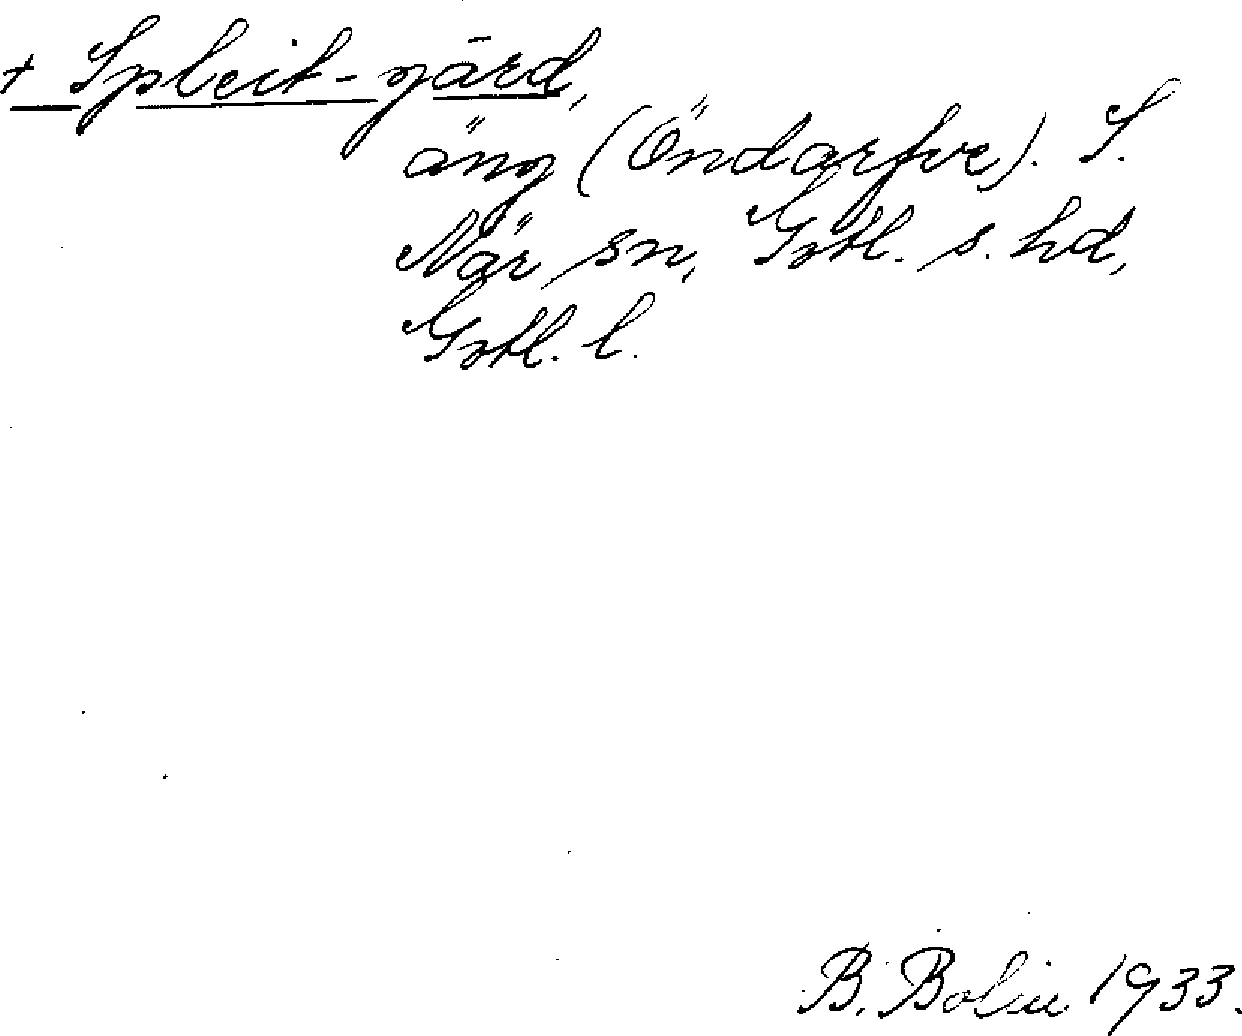 + Spleit-gārd,
äng (Öndarfve). S.
När sn, Gotl. s. hd,
Gotl. l.
B. Bolin 1933.